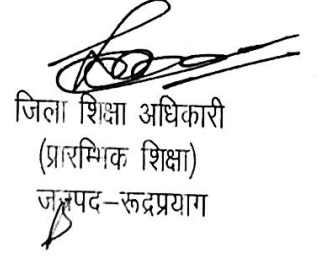 जिला शिक्षा अधिकारी
(प्रारम्भिक शिक्षा)
जनपद-रूद्रप्रयाग